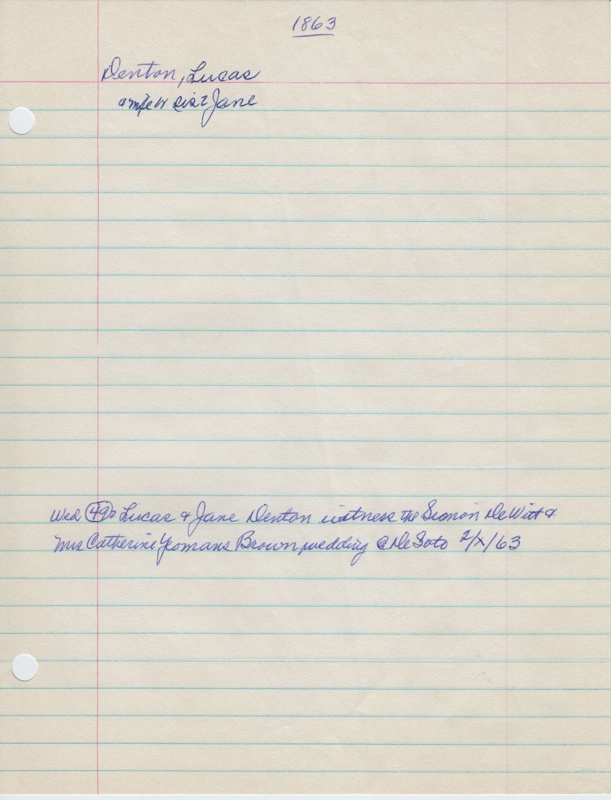 1863
Denton, Lucas
& wife or sis? Jane
Wed 492 Lucas & Jane Denton witness the Simon DeWitt &
Mrs Catherine Yeomans Brown wedding @ De Soto 2/X/63